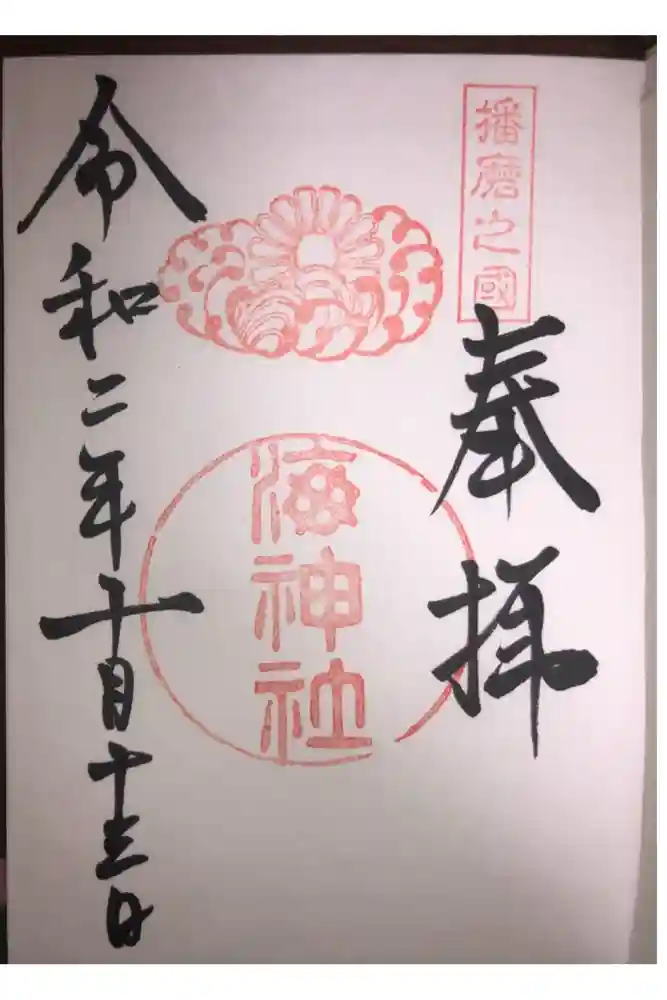 播磨之國
奉拝
海神社
令和二年十月十三日